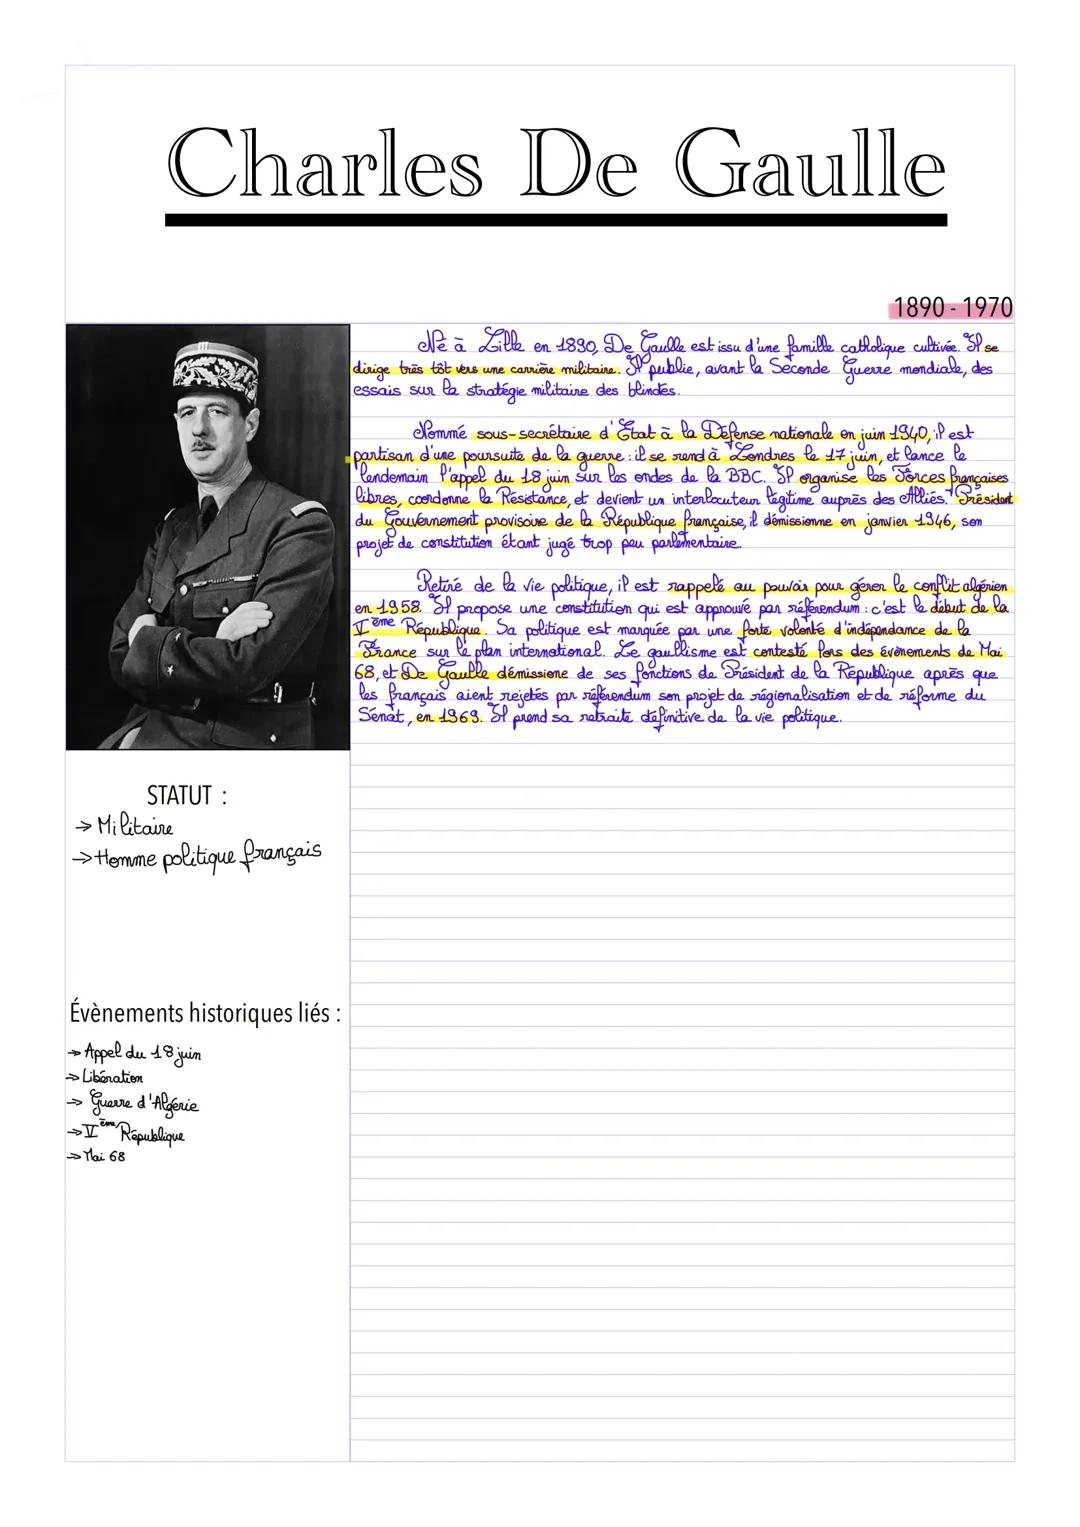 Charles De Gaulle
1890 - 1970
Né à Lille en 1890, De Gaulle est issu d'une famille catholique cultivée. Il se
dirige très tôt vers une carrière militaire. Il publie, avant la Seconde Guerre mondiale, des
essais sur la stratégie militaire des blindés.
Nommé sous-secrétaire d'État à la Défense nationale en juin 1940, il est
partisan d'une poursuite de la guerre : il se rend à Londres le 17 juin, et lance le
lendemain l'appel du 18 juin sur les ondes de la BBC. Il organise les Forces françaises
libres, coordonne la Résistance, et devient un interlocuteur légitime auprès des Alliés. Président
du Gouvernement provisoire de la République française, il démissionne en janvier 1946, son
projet de constitution étant jugé trop peu parlementaire.
Retiré de la vie politique, il est rappelé au pouvoir pour gérer le conflit algérien
en 1958. Il propose une constitution qui est approuvé par référendum : c'est le début de la
Vème République. Sa politique est marquée par une forte volonté d'indépendance de la
France sur le plan international. Le gaullisme est contesté lors des évènements de Mai
68, et De Gaulle démissione de ses fonctions de Président de la République après que
les français aient rejetés par référendum son projet de régionalisation et de réforme du
Sénat, en 1969. Il prend sa retraite définitive de la vie politique.
STATUT :
→ Militaire
→ Homme politique français
Évènements historiques liés :
→ Appel du 18 juin
→ Libération
→ Guerre d'Algérie
→ Vème République
→ Mai 68